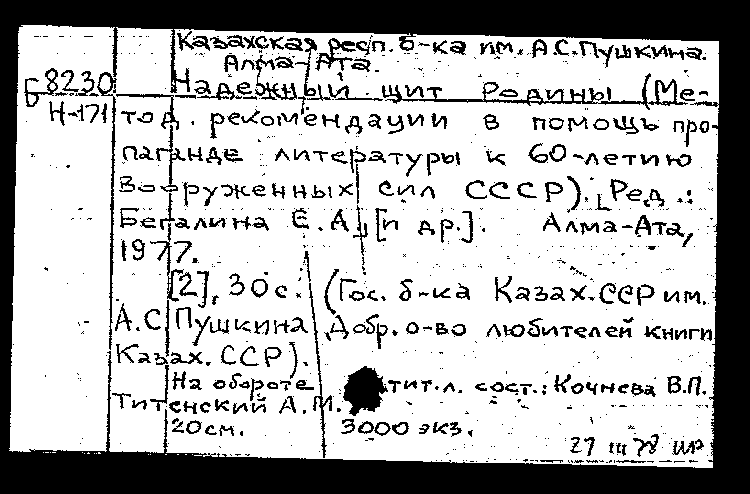 Казахская респ. б-ка им. А.С.Пушкина.
Алма-Ата.
Б8230 Надежный щит Родины (Ме-
Н-171 тод. рекомендации в помощь про-
паганде литературы к 60-летию
Вооруженных сил СССР). [Ред.:
Бегалина Е.А.] [и др.]. Алма-Ата,
1977.
[2], 30с. (Гос. б-ка Казах.ССР им.
А.С.Пушкина Добр. о-во любителей книги
Казах. ССР).
На обороте тит.л. сост.: Кочнева В.П.
Титенский А.М.
20см. 3000 экз.
27 III 78